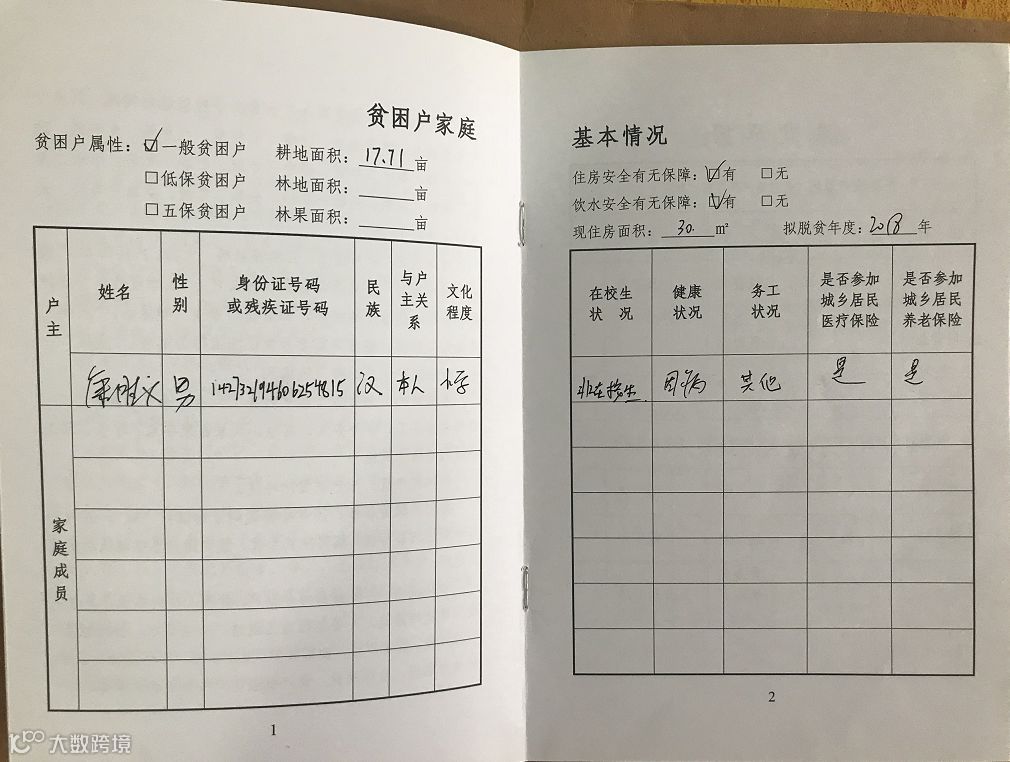 贫困户家庭
贫困户属性：☑一般贫困户 耕地面积：17.71亩
□低保贫困户 林地面积：亩
□五保贫困户 林果面积：亩
户主
姓名
性别
身份证号码
或残疾证号码
民族
与户
主关
系
文化
程度
男 汉 本人 小学
家庭成员
1
基本情况
住房安全有无保障：☑有 □无
饮水安全有无保障：☑有 □无
现住房面积：30.m² 拟脱贫年度：2018年
在校生
状 况
健康
状况
务工
状况
是否参加
城乡居民
医疗保险
是否参加
城乡居民
养老保险
非在校生 因病 其他 是 是
2
大数跨境